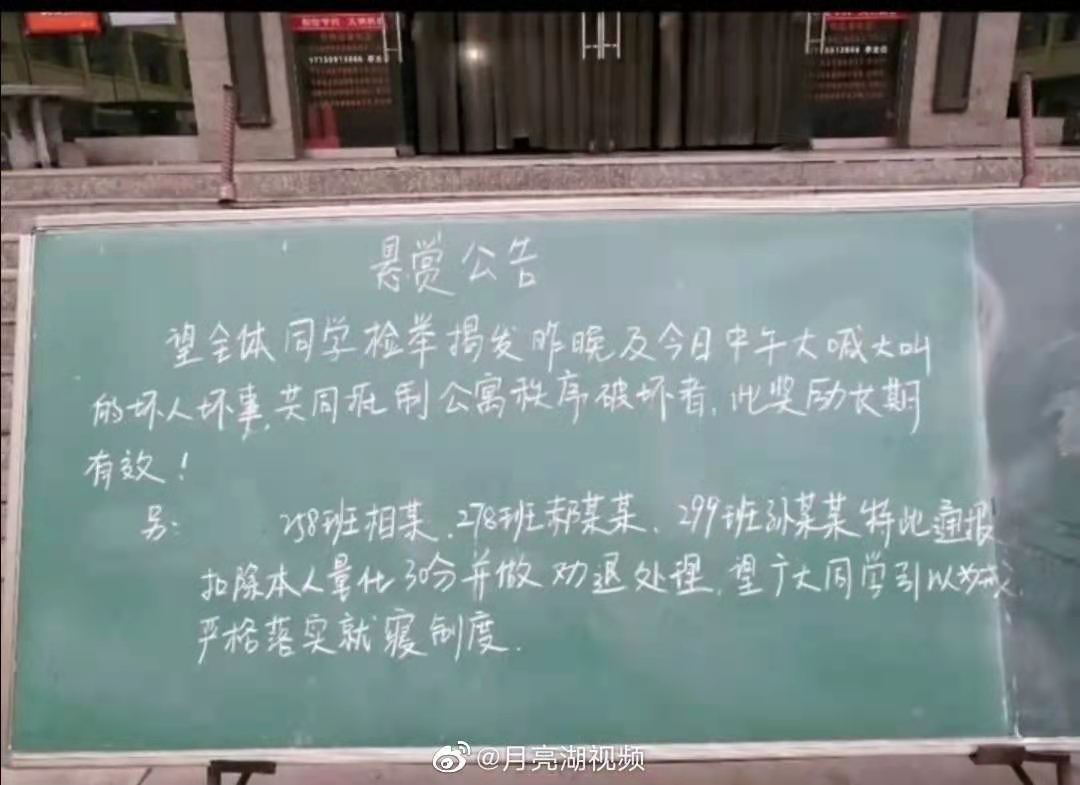 悬赏公告
望全体同学检举揭发昨晚及今日中午大喊大叫
的坏人坏事,共同抵制公寓秩序破坏者,此奖励长期
有效!
另: 258班相某、278班郝某某、299班孙某某特此通报
扣除本人量化30分并做劝退处理,望广大同学引以为戒,
严格落实就寝制度.
@月亮湖视频